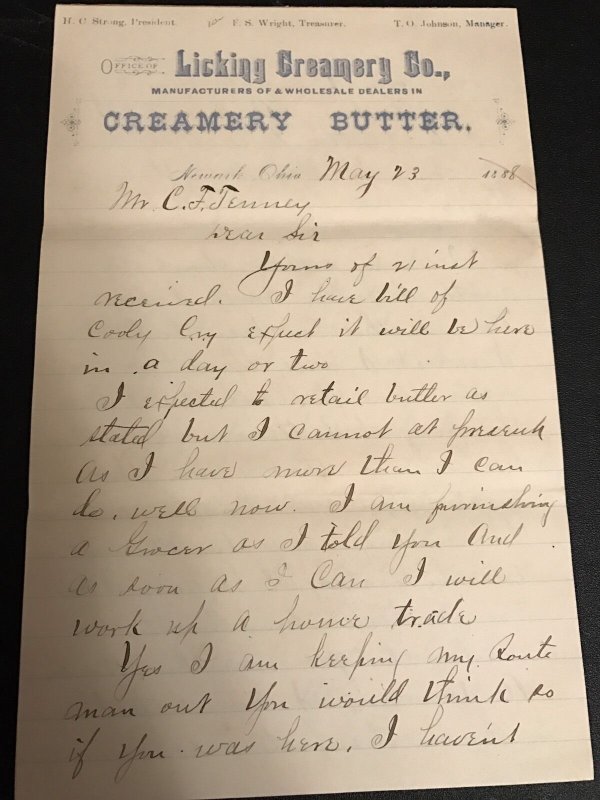 H. C. Strong, President. F. S. Wright, Treasurer. T. O. Johnson, Manager.
OFFICE OF Licking Creamery Co.,
MANUFACTURERS OF & WHOLESALE DEALERS IN
CREAMERY BUTTER.
Newark Ohio May 23 1888
Mr C. F. Tenney
Dear Sir
Yours of 21 inst
received. I have bill of
Cooly Cry expect it will be here
in a day or two
I expected to retail butter as
stated but I cannot at present
as I have more than I can
do, well now. I am furnishing
a Grocer as I told you And
as soon as I Can I will
work up a home trade
Yes I am keeping my Route
man out You would think so
if you was here. I havent